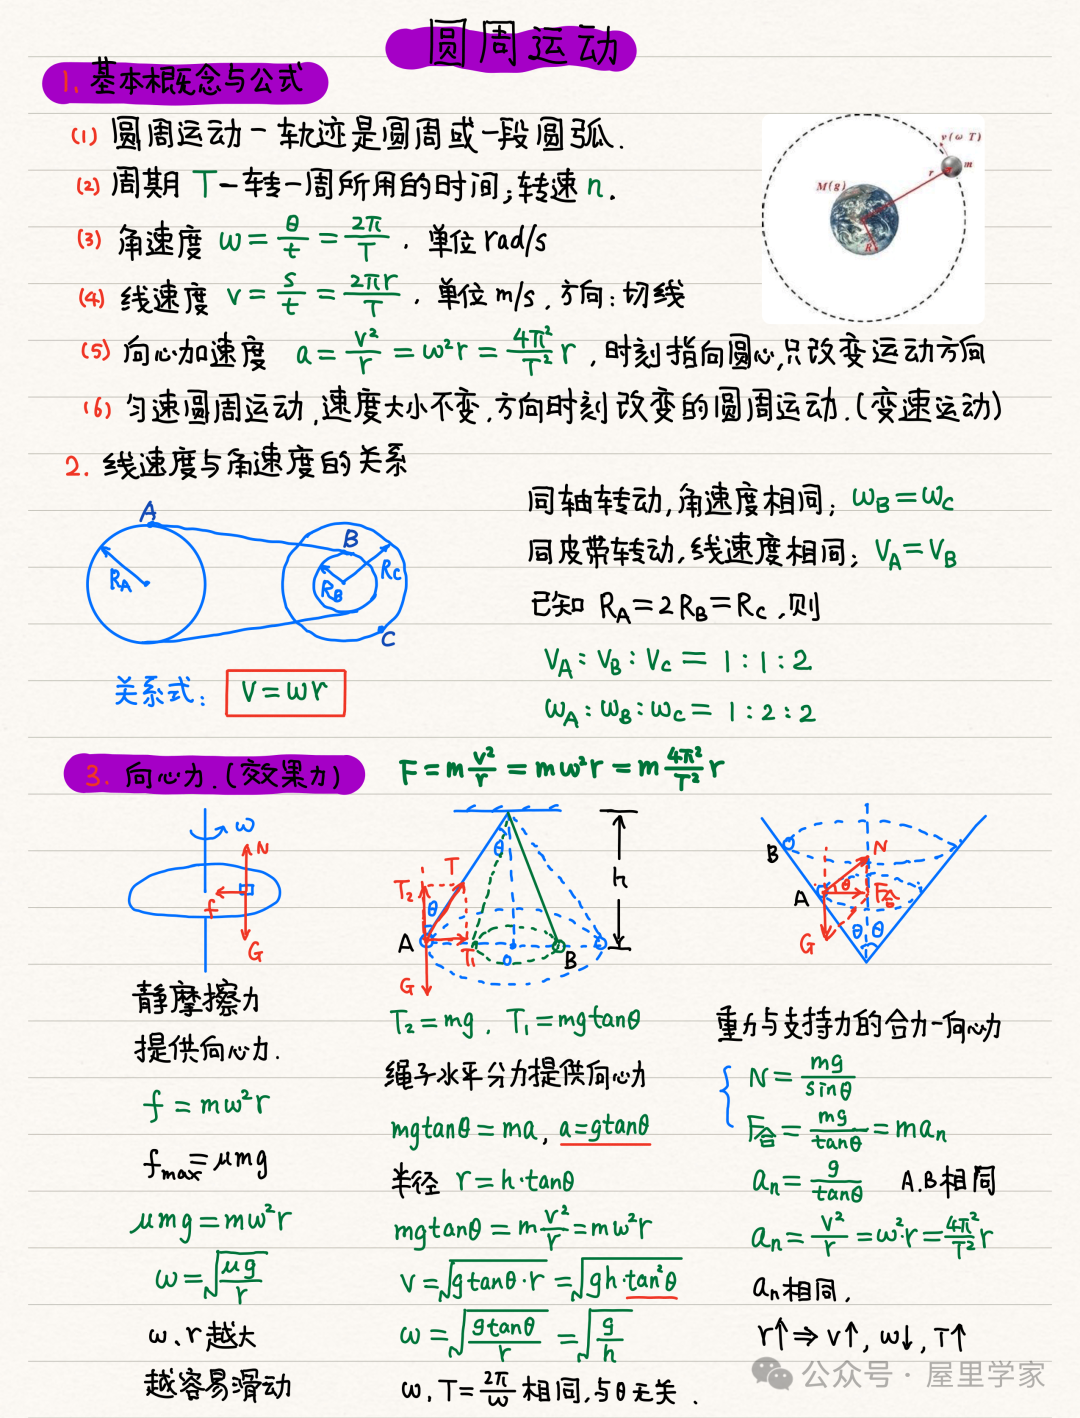 圆周运动
1. 基本概念与公式
(1) 圆周运动一轨迹是圆周或一段圆弧.
(2) 周期 T一转一周所用的时间;转速 n.
(3) 角速度 ω = θ/t = 2π/T . 单位 rad/s
(4) 线速度 v = s/t = 2πr/T . 单位 m/s . 方向:切线
(5) 向心加速度 a = v²/r = ω²r = 4π²/T² r , 时刻指向圆心,只改变运动方向
(6) 匀速圆周运动,速度大小不变,方向时刻改变的圆周运动.(变速运动)
v(ω T)
m
r
M(g)
R
2. 线速度与角速度的关系
A
B
R_A
R_B
R_C
C
关系式: V=ωr
同轴转动,角速度相同; ω_B=ω_C
同皮带转动,线速度相同; V_A=V_B
已知 R_A=2R_B=R_C ,则
V_A:V_B:V_C = 1:1:2
ω_A:ω_B:ω_C = 1:2:2
3. 向心力.(效果力)
F=m v²/r = mω²r = m 4π²/T² r
ω
N
f
G
静摩擦力
提供向心力.
f = mω²r
f_max=μmg
μmg=mω²r
ω=√(μg/r)
ω、r越大
越容易滑动
θ
h
T
T₂
θ
A
T₁
O
B
G
T₂=mg . T₁=mgtanθ
绳子水平分力提供向心力
mgtanθ=ma, a=gtanθ
半径 r=h·tanθ
mgtanθ=m v²/r=mω²r
V=√(gtanθ·r) =√(gh·tan²θ)
ω=√(gtanθ/r) =√(g/h)
ω,T=2π/ω 相同,与θ无关 .
B
N
A
θ
F合
G
θ θ
重力与支持力的合力一向心力
N= mg/sinθ
F合= mg/tanθ =ma_n
a_n= g/tanθ A.B相同
a_n= v²/r =ω²·r= 4π²/T² r
a_n相同,
r↑⇒v↑, ω↓, T↑
公众号 · 屋里学家